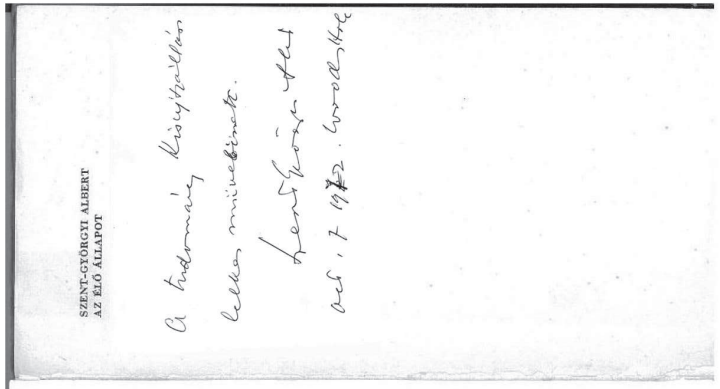 SZENT-GYÖRGYI ALBERT
AZ ÉLŐ ÁLLAPOT
A tudomány Kisújszállási
lelkes művelőinek.
Szent-Györgyi Albert
oct. 7 1972. Woods Hole